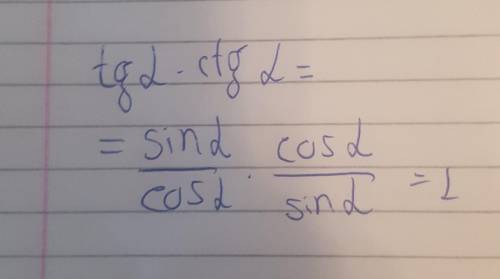 tg α · ctg α =
= sin α / cos α · cos α / sin α = 1